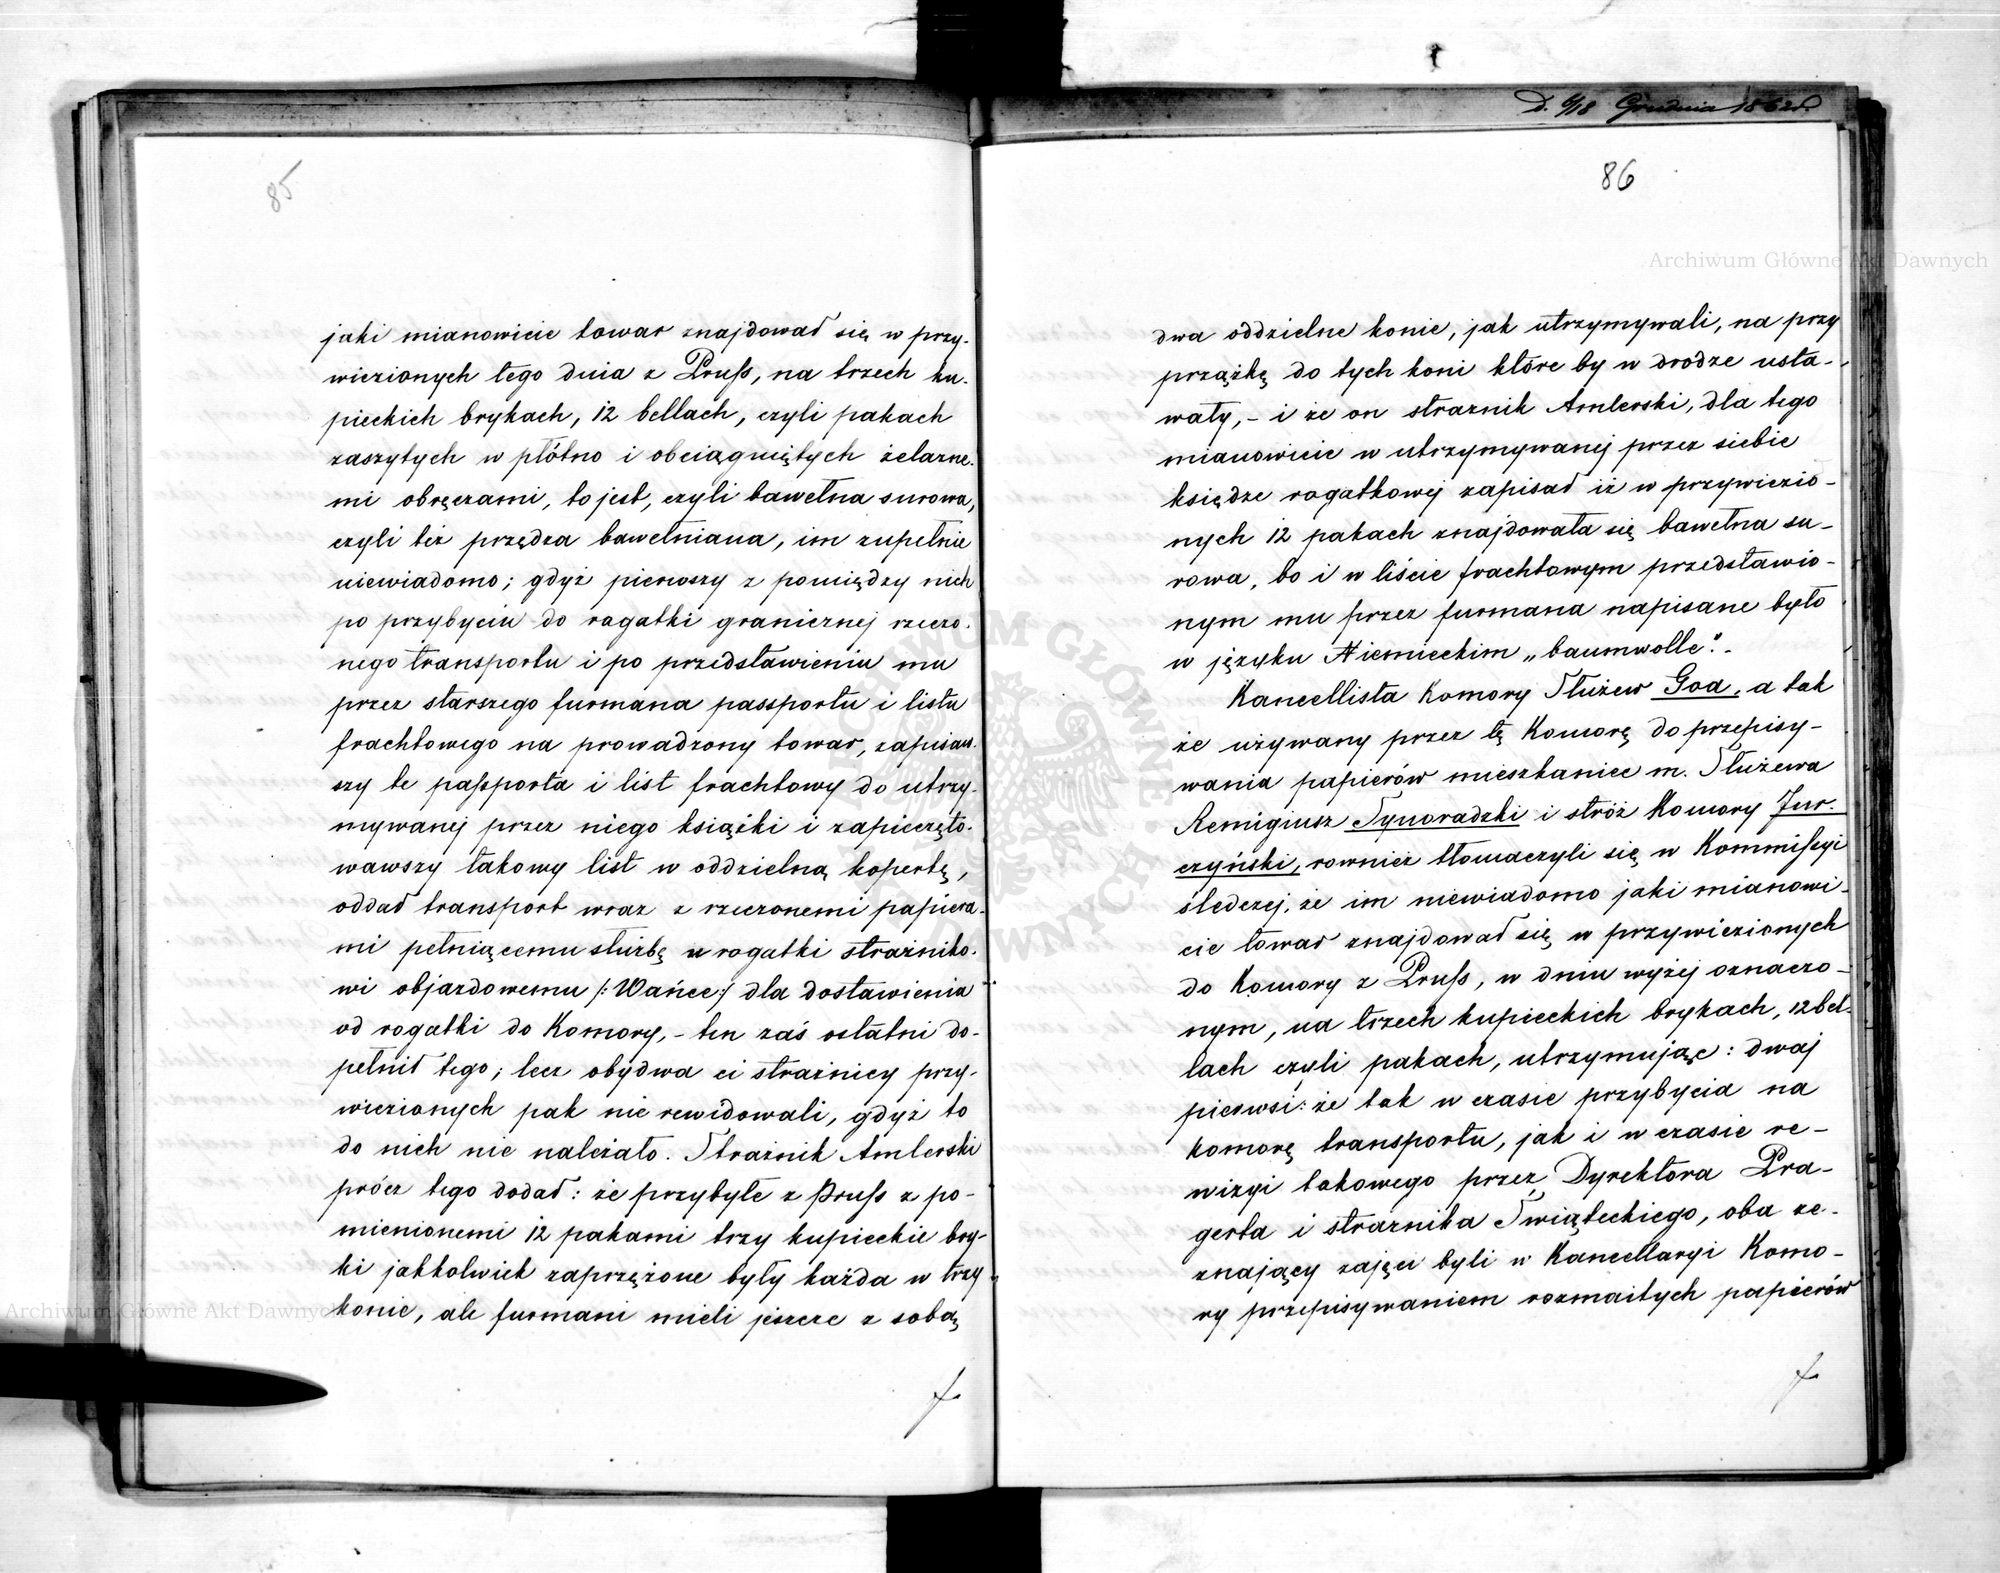 85
jaki mianowicie towar znajdował się w przy-
wiezionych tego dnia z Pruß, na trzech ku-
pieckich brykach, 12 bellach, czyli pakach
zaszytych w płótno i obciągniętych żelazne-
mi obręczami, to jest, czyli bawełna surowa,
czyli też przędza bawełniana, im zupełnie
niewiadomo; gdyż pierwszy z pomiędzy nich
po przybyciu do rogatki granicznej rzeczo-
nego transportu i po przedstawieniu mu
przez starszego furmana passportu i listu
frachtowego na prowadzony towar, zapisaw-
szy te paßporta i list frachtowy do utrzy-
mywanej przez niego książki i zapieczęto-
wawszy takowy list w oddzielną kopertę,
oddał transport wraz z rzeczonemi papiera-
mi pełniącemu służbę u rogatki strażniko-
wi objazdowemu /:Wańce:/ dla dostawienia
od rogatki do Komory, - ten zaś ostatni do-
pełnił tego; lecz obydwa ci strażnicy przy-
wiezionych pak nie rewidowali, gdyż to
do nich nie należało. Strażnik Amlerski
prócz tego dodał: że przybyłe z Pruß z po-
mienionemi 12 pakami trzy kupieckie bry-
ki jakkolwiek zaprzężone były każda w trzy
konie, ale furmani mieli jeszcze z sobą
D. 6/18 Grudnia 1862 r.
86
dwa oddzielne konie, jak utrzymywali, na przy
przążkę do tych koni które by w drodze usta-
wały, - i że on strażnik Amlerski, dla tego
mianowicie w utrzymywanej przez siebie
księdze rogatkowej zapisał iż w przywiezio-
nych 12 pakach znajdowała się bawełna su-
rowa, bo i w liście frachtowym przedstawio-
nym mu przez furmana napisane było
w języku Niemieckim „baumwolle". -
Kancellista Komory Służew Goa, a tak
że używany przez tę Komorę do przepisy-
wania papierów mieszkaniec m. Służewa
Remigiusz Synoradzki i stróż Komory Jur-
czyński, rownież tłomaczyli się w Kommißyi
śledczej, że im niewiadomo jaki mianowi-
cie towar znajdował się w przywiezionych
do Komory z Pruß, w dniu wyżej oznaczo-
nym, na trzech kupieckich brykach, 12 bel-
lach czyli pakach, utrzymując: dwaj
pierwsi: że tak w czasie przybycia na
komorę transportu, jak i w czasie re-
wizyi takowego przez Dyrektora Pra-
gerta i strażnika Świąteckiego, oba ze-
znający zajęci byli w Kancellaryi Komo-
ry przepisywaniem rozmaitych papierów
Archiwum Główne Akt Dawnych
Archiwum Główne Akt Dawnych